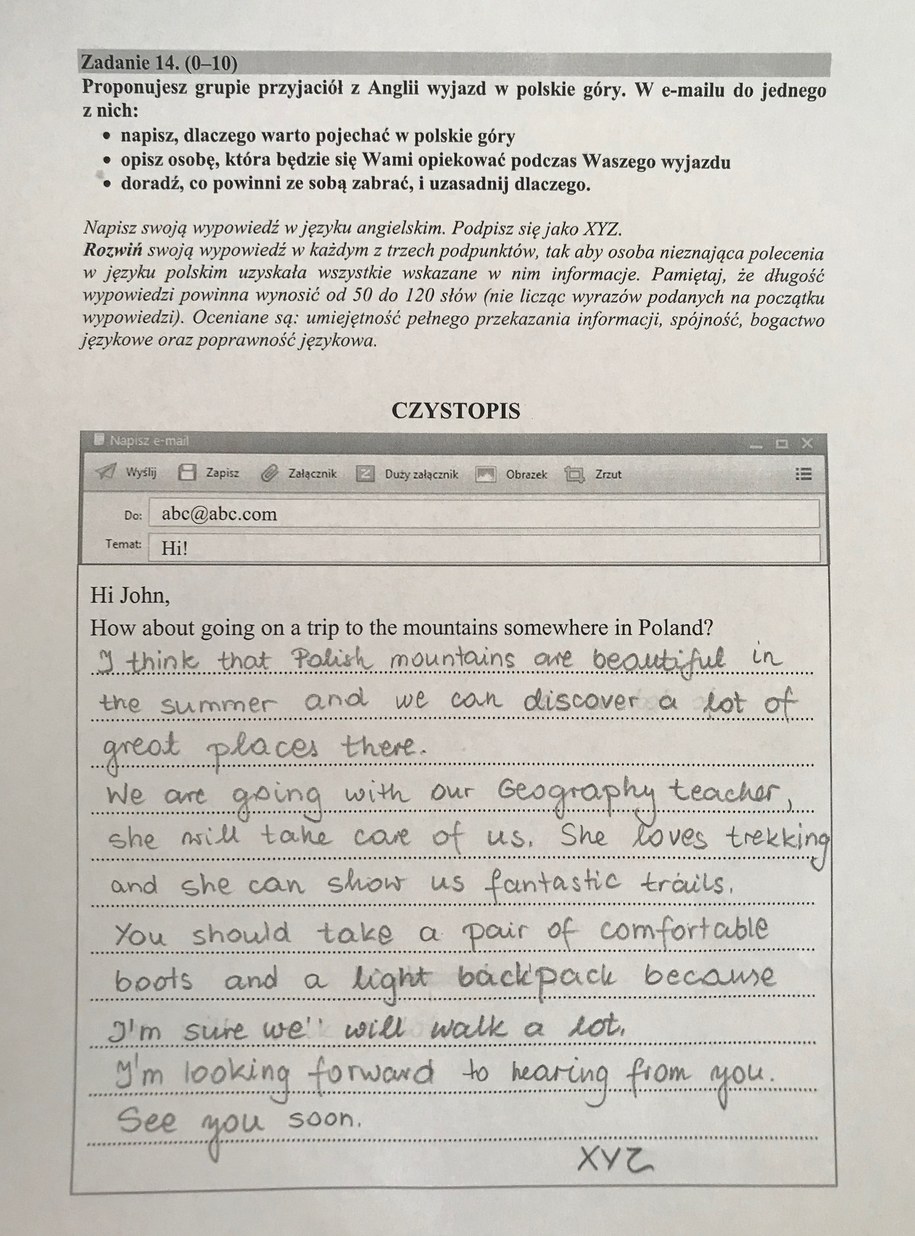 Zadanie 14. (0–10)
Proponujesz grupie przyjaciół z Anglii wyjazd w polskie góry. W e-mailu do jednego
z nich:
• napisz, dlaczego warto pojechać w polskie góry
• opisz osobę, która będzie się Wami opiekować podczas Waszego wyjazdu
• doradź, co powinni ze sobą zabrać, i uzasadnij dlaczego.
Napisz swoją wypowiedź w języku angielskim. Podpisz się jako XYZ.
Rozwiń swoją wypowiedź w każdym z trzech podpunktów, tak aby osoba nieznająca polecenia
w języku polskim uzyskała wszystkie wskazane w nim informacje. Pamiętaj, że długość
wypowiedzi powinna wynosić od 50 do 120 słów (nie licząc wyrazów podanych na początku
wypowiedzi). Oceniane są: umiejętność pełnego przekazania informacji, spójność, bogactwo
językowe oraz poprawność językowa.
CZYSTOPIS
Napisz e-mail
Wyślij Zapisz Załącznik Duży załącznik Obrazek Zrzut
Do: abc@abc.com
Temat: Hi!
Hi John,
How about going on a trip to the mountains somewhere in Poland?
I think that Polish mountains are beautiful in
the summer and we can discover a lot of
great places there.
We are going with our Geography teacher,
she will take care of us. She loves trekking
and she can show us fantastic trails.
You should take a pair of comfortable
boots and a light backpack because
I'm sure we'' will walk a lot.
I'm looking forward to hearing from you.
See you soon.
XYZ